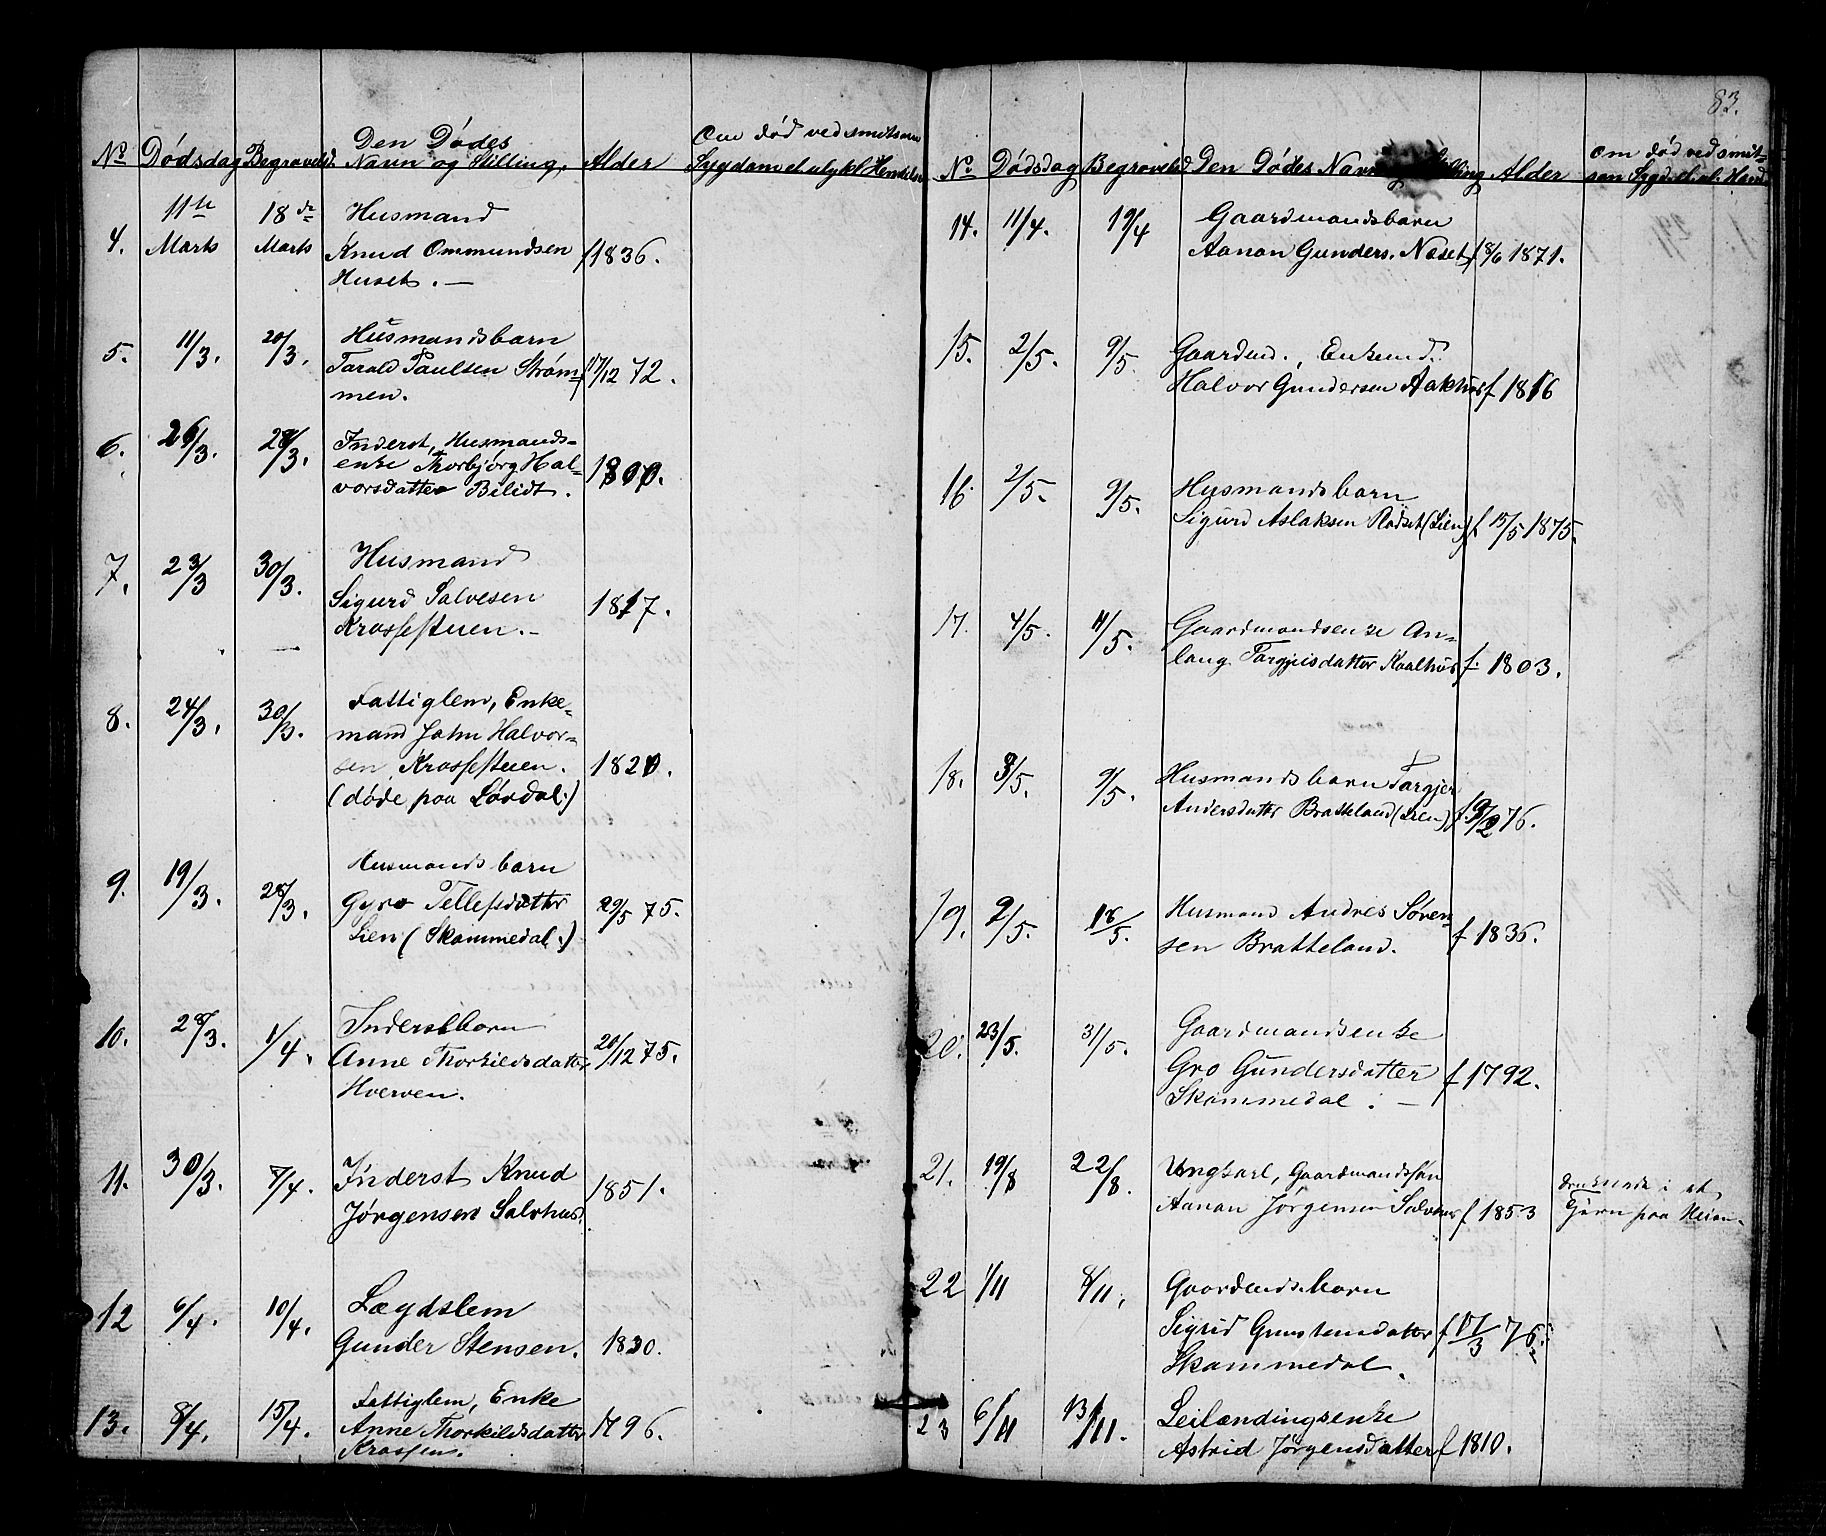 No Dødsdag Begravelsd. Den Dødes Navn og Stilling, Alder Om død ved smitsom Sygdom el. ulykl. Hendelse
4. 11te Marts 18de Marts Husmand
Knud Ommundsen f 1836.
Huset. —
5. 11/3. 20/3. Husmandsbarn
Tarald Paulsen Strøm= f 17/12 72.
men.
6. 26/3. 28/3. Inderst, Husmands=
enke Thorbjørg Hal= 1800.
vorsdatter Bilidt.
7. 23/3 30/3. Husmand
Sigurd Salvesen 1817.
Krossestuen. —
8. 24/3. 30/3. Fattiglem, Enke=
mand John Halvor=
sen Krossestuen. 1820.
(døde paa Lørdal.)
9. 19/3. 28/3. Husmandsbarn
Gyro Tellefsdatter 29/5 75.
Lien (Skammedal.)
10. 28/3. 1/4. Inderstbarn
Anne Thorkildsdatter 20/12 75.
Hverven.
11. 30/3. 7/4. Inderst Knud
Jørgensen Salvhus. 1851.
12 6/4. 10/4. Lægdslem
Gunder Stensen. 1830.
13. 8/4. 15/4. Fattiglem, Enke
Anne Thorkildsdatter 1796.
Krossen.
83.
No Dødsdag Begravelsd Den Dødes Navn Stilling Alder Om død ved smit=
som Sygd. el. ul. Hend.
14. 11/4. 19/4 Gaardmandsbarn
Aanon Gunders. Næset f 8/6 1871.
15. 2/5. 9/5. Gaardmd., Enkemd.
Halvor Gundersen Aakhus f 1816
16. 2/5. 9/5. Husmandsbarn
Sigurd Aslaksen Rødset (Lien) f 15/5 1875.
17. 4/5. 11/5. Gaardmandsenke An=
laug Targjeisdatter Kaalhus f. 1803.
18. 3/5. 9/5. Husmandsbarn Targjer
Andersdatter Bratteland (Lien) f. 9/2 76.
19. 9/5. 18/5. Husmand Andres Søren=
sen Bratteland. f 1836.
20. 23/5. 31/5. Gaardmandsenke
Gro Gundersdatter f 1792.
Skammedal. —
21. 19/8 22/8. Ungkarl, Gaardmandssøn
Aanon Jørgensen Salvhus f 1853 druknede i et
Tjern paa Heien.
22 1/11 8/11. Gaardmdsbarn
Sigrid Gunstensdatter f 17/3 76.
Skammedal.
23 6/11 13/11. Leilændingsenke
Astrid Jørgensdatter f 1810.